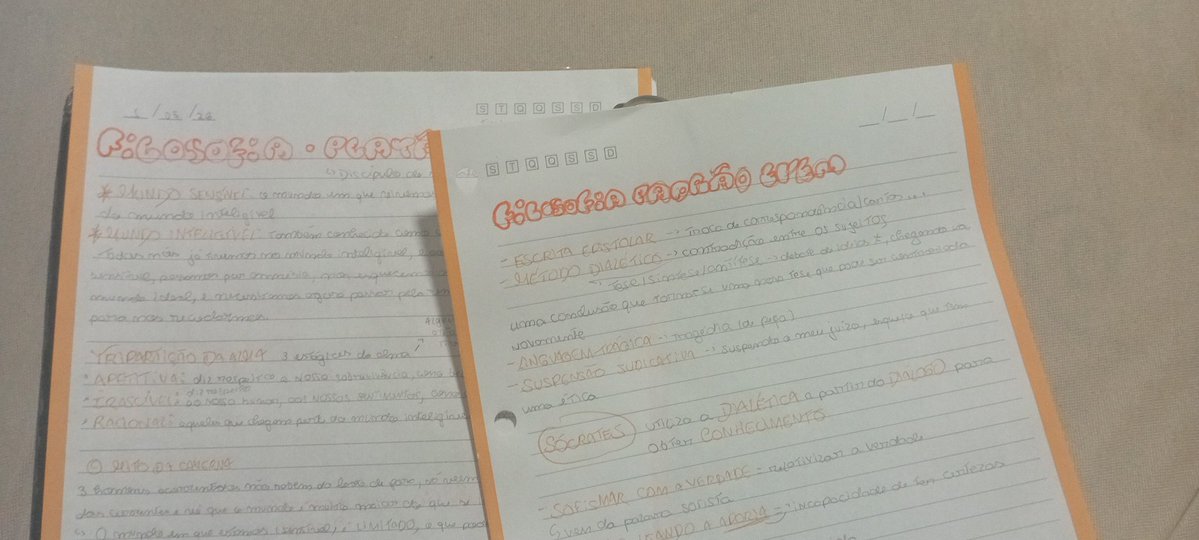 5 / 05 / 26
S T Q Q S S D
FILOSOFIA • PLAT
↳ Discípulo de
* MUNDO SENSÍVEL: o mundo em que
do mundo inteligível
* MUNDO INTELIGÍVEL: Também conhecido como
Todas nós já
sensível, passamos por amnésia, nos esquecemos
mundo ideal, e necessitamos agora passar pelo
para nos recordarmos.
TRIPARTIÇÃO DA ALMA 3 estágios da alma
• APETITIVA: diz respeito a nossa sobrevivência, uma
diz respeito
• IRASCÍVEL: ao nosso humor, aos nossos sentimentos,
• RACIONAL: aqueles que chegam perto do mundo inteligível
MITO DA CAVERNA
3 homens acorrentados não sabem do lado de fora, só veem
das correntes e vê que o mundo é muito maior do que se
↳ O mundo em que estamos (sensível) é LIMITADO, e que
S T Q Q S S D
_/_/_
FILOSOFIA
- ESCRITA EPISTOLAR → troca de correspondência/cartas...
- MÉTODO DIALÉTICO → contradição entre os sujeitos
↳ Tese/síntese/antítese → debate de ideias, chegando na
uma conclusão que torna-se uma nova tese que pode ser contrariada
novamente
- LINGUAGEM TRÁGICA → tragédia (de peça)
- SUSPENSÃO JUDICATIVA → suspendo o meu juízo, enquanto que tenha
uma ética
SÓCRATES utiliza a DIALÉTICA a partir do DIÁLOGO para
obter CONHECIMENTO
- SOFISMAR COM A VERDADE = relativizar a verdade
↳ vem da palavra sofista
A APORIA = incapacidade de ter certezas